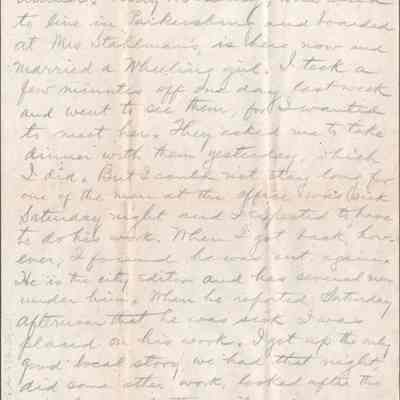 to live in Parkersburg and boarded
at Mrs Stahlman's, is here now and
married a Wheeling girl. I took a
few minutes off one day last week
and went to see them, for I wanted
to meet her. They asked me to take
dinner with them yesterday, which
I did. But I could not stay long for
one of the men at the office was sick
Saturday night and I expected to have
to do his work. When I got back, how-
ever, I found he was out again.
He is the city editor and has several men
under him. When he reported Saturday
afternoon that he was sick I was
placed on his work. I got up the only
good local story we had that night,
did some other work, looked after the